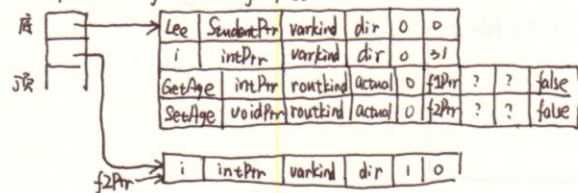 底
顶
Lee StudentPtr varkind dir 0 0
i intPtr varkind dir 0 31
GetAge intPtr routkind actual 0 f1Ptr ? ? false
SetAge voidPtr routkind actual 0 f2Ptr ? ? false
f2Ptr
i intPtr varkind dir 1 0